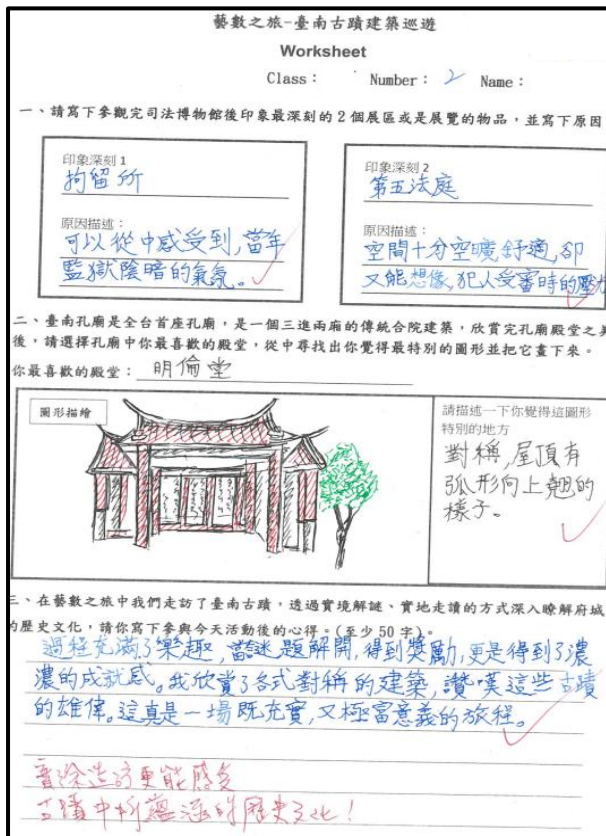 藝數之旅-臺南古蹟建築巡遊
Worksheet
Class： Number： 2 Name：
一、請寫下參觀完司法博物館後印象最深刻的 2 個展區或是展覽的物品，並寫下原因
印象深刻 1
拘留所
原因描述：
可以從中感受到,當年
監獄陰暗的氣氛。
印象深刻 2
第五法庭
原因描述：
空間十分空曠舒適,卻
又能想像,犯人受審時的壓力
二、臺南孔廟是全台首座孔廟，是一個三進兩廂的傳統合院建築，欣賞完孔廟殿堂之美
後，請選擇孔廟中你最喜歡的殿堂，從中尋找出你覺得最特別的圖形並把它畫下來。
你最喜歡的殿堂： 明倫堂
圖形描繪
請描述一下你覺得這圖形
特別的地方
對稱,屋頂有
弧形向上翹的
樣子。
三、在藝數之旅中我們走訪了臺南古蹟，透過實境解謎、實地走讀的方式深入瞭解府城
的歷史文化，請你寫下參與今天活動後的心得。(至少 50 字)。
過程充滿了樂趣,當謎題解開,得到獎勵,更是得到了濃
濃的成就感。我欣賞了各式對稱的建築,讚嘆這些古蹟
的雄偉。這真是一場既充實,又極富意義的旅程。
實際造訪更能感受
古蹟中所蘊涵的歷史文化！